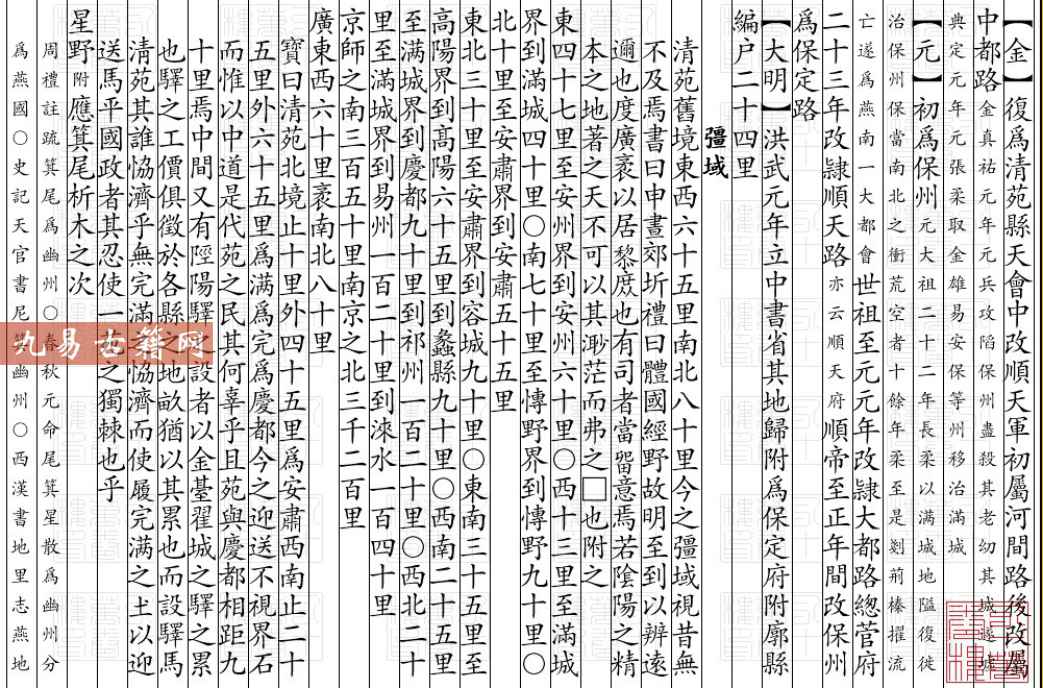 【金】復爲清苑縣天會中改順天軍初屬河間路後改屬
中都路金真祐元年元兵攻陷保州盡殺其老幼其城遂墟
典定元年元張柔取金雄易安保等州移治滿城
【元】初爲保州元大祖二十二年長柔以滿城地隘復徙
治保州保當南北之衝荒空者十餘年柔至是剗荊榛擢流
亡遂爲燕南一大都會世祖至元元年改隷大都路總菅府
二十三年改隷順天路亦云順天府順帝至正年間改保州
爲保定路
【大明】洪武元年立中書省其地歸附爲保定府附廓縣
編户二十四里
彊域
清苑舊境東西六十五里南北八十里今之彊域視昔無
不及焉書曰申畫郊圻禮曰體國經野故明至到以辨遠
邇也度廣袤以居黎庻也有司者當畱意焉若陰陽之精
本之地著之天不可以其渺茫而弗之□也附之
東四十七里至安州界到安州六十里〇西十三里至滿城
界到滿城四十里〇南七十里至慱野界到慱野九十里〇
北十里至安肅界到安肅五十五里
東北三十里至安肅界到容城九十里〇東南三十五里至
高陽界到高陽六十五里到蠡縣九十里〇西南二十五里
至满城界到慶都九十里到祁州一百二十里〇西北二十
里至滿城界到易州一百二十里到淶水一百四十里
京師之南三百五十里南京之北三千二百里
廣東西六十里袤南北八十里
寳曰清苑北境止十里外四十五里爲安肅西南止二十
五里外六十五里爲满爲完爲慶都今之迎送不視界石
而惟以中道是代苑之民其何辜乎且苑與慶都相距九
十里焉中間又有陘陽驛之設者以金臺翟城之驛之累
也驛之工價俱徵於各縣之地畝猶以其累也而設驛馬
清苑其誰恊濟乎無完滿之恊濟而使履完满之土以迎
送馬平國政者其忍使一苑之獨棘也乎
星野附應箕尾析木之次
周禮註疏箕尾爲幽州〇春秋元命尾箕星散爲幽州分
爲燕國〇史記天官書尼箕幽州〇西漢書地里志燕地
九易古籍网